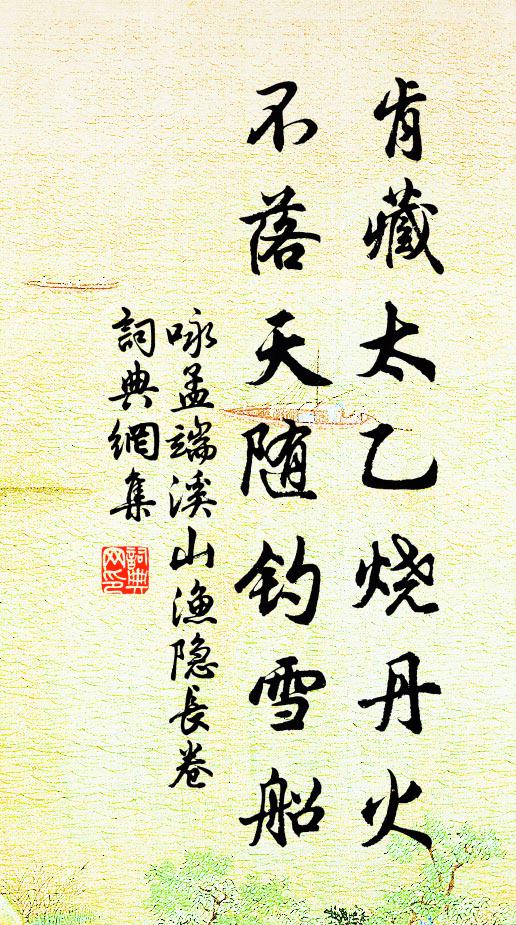 肯藏太乙烧丹火
不落天随钓雪船
咏孟端溪山漁隐長卷
詞典網集
詞典网印